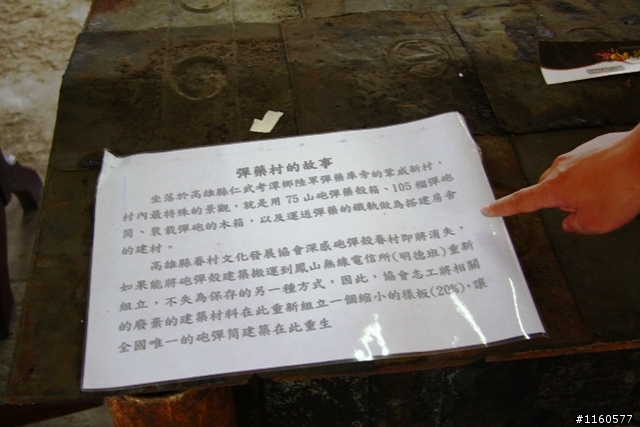 彈藥村的故事
坐落於高雄縣仁武考潭鄉陸軍彈藥庫旁的軍威新村，
村內最特殊的景觀，就是用75山砲彈藥殼箱、105榴彈砲
筒、裝載彈砲的木箱，以及運送彈藥的鐵軌做為搭建房舍
的建材。
高雄縣眷村文化發展協會深感砲彈殼眷村即將消失，
如果能將砲彈殼建築搬運到鳳山無線電信所(明德班)重新
組立，不失為保存的另一種方式，因此，協會志工將相關
的廢棄的建築材料在此重新組立一個縮小的樣板(20%)，讓
全國唯一的砲彈筒建築在此重生
#1160577